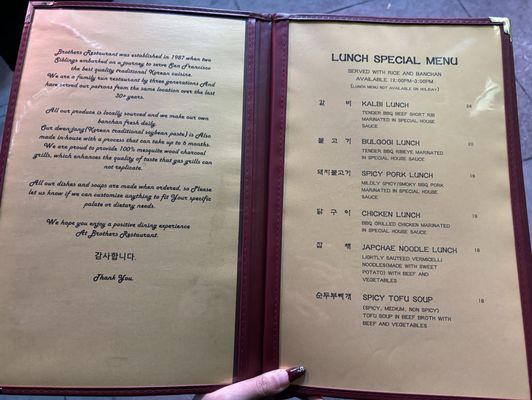 Brothers Restaurant was established in 1987 when two
Siblings embarked on a journey to serve San Francisco
the best quality traditional Korean cuisine.
We are a family run restaurant by three generations And
have served our patrons from the same location over the last
30+ years.
All our produce is locally sourced and we make our own
banchan fresh daily.
Our dwenjang(Korean traditional soybean paste) is Also
made in-house with a process that can take up to 6 months.
We are proud to provide 100% mesquite wood charcoal
grills, which enhances the quality of taste that gas grills can
not replicate.
All our dishes and soups are made when ordered, so Please
let us know if we can customize anything to fit Your specific
palate or dietary needs.
We hope you enjoy a positive dining experience
At Brothers Restaurant.
감사합니다.
Thank You.
LUNCH SPECIAL MENU
SERVED WITH RICE AND BANCHAN
AVAILABLE 12:00PM-3:00PM
(LUNCH MENU NOT AVAILABLE ON HOLIDAY)
갈 비 KALBI LUNCH 24
TENDER BBQ BEEF SHORT RIB
MARINATED IN SPECIAL HOUSE
SAUCE
불 고 기 BULGOGI LUNCH
TENDER BBQ RIBEYE MARINATED
IN SPECIAL HOUSE SAUCE
돼지불고기 SPICY PORK LUNCH
MILDLY SPICY/SMOKY BBQ PORK
MARINATED IN SPECIAL HOUSE
SAUCE
닭 구 이 CHICKEN LUNCH 18
BBQ GRILLED CHICKEN MARINATED
IN SPECIAL HOUSE SAUCE
잡 채 JAPCHAE NOODLE LUNCH 18
LIGHTLY SAUTEED VERMICELLI
NOODLES(MADE WITH SWEET
POTATO) WITH BEEF AND
VEGETABLES
순두부찌개 SPICY TOFU SOUP 18
(SPICY, MEDIUM, NON SPICY)
TOFU SOUP IN BEEF BROTH WITH
BEEF AND VEGETABLES